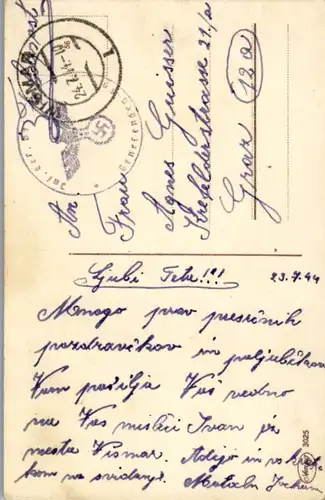 Feldpost
WISMAR
24.7.44-10
1
An
Frau
Agnes Gneisser
Krefelderstrasse 21/a
Graz (12a)
Ljubi Teta!!!
23.7.44
Mnogo prav presrčnih
pozdravčkov in poljubčkov
Vam pošilja Vaš vedno
na Vas misleči Ivan iz
mesta Vismar. Adijo in
kom na svidenje.
3025